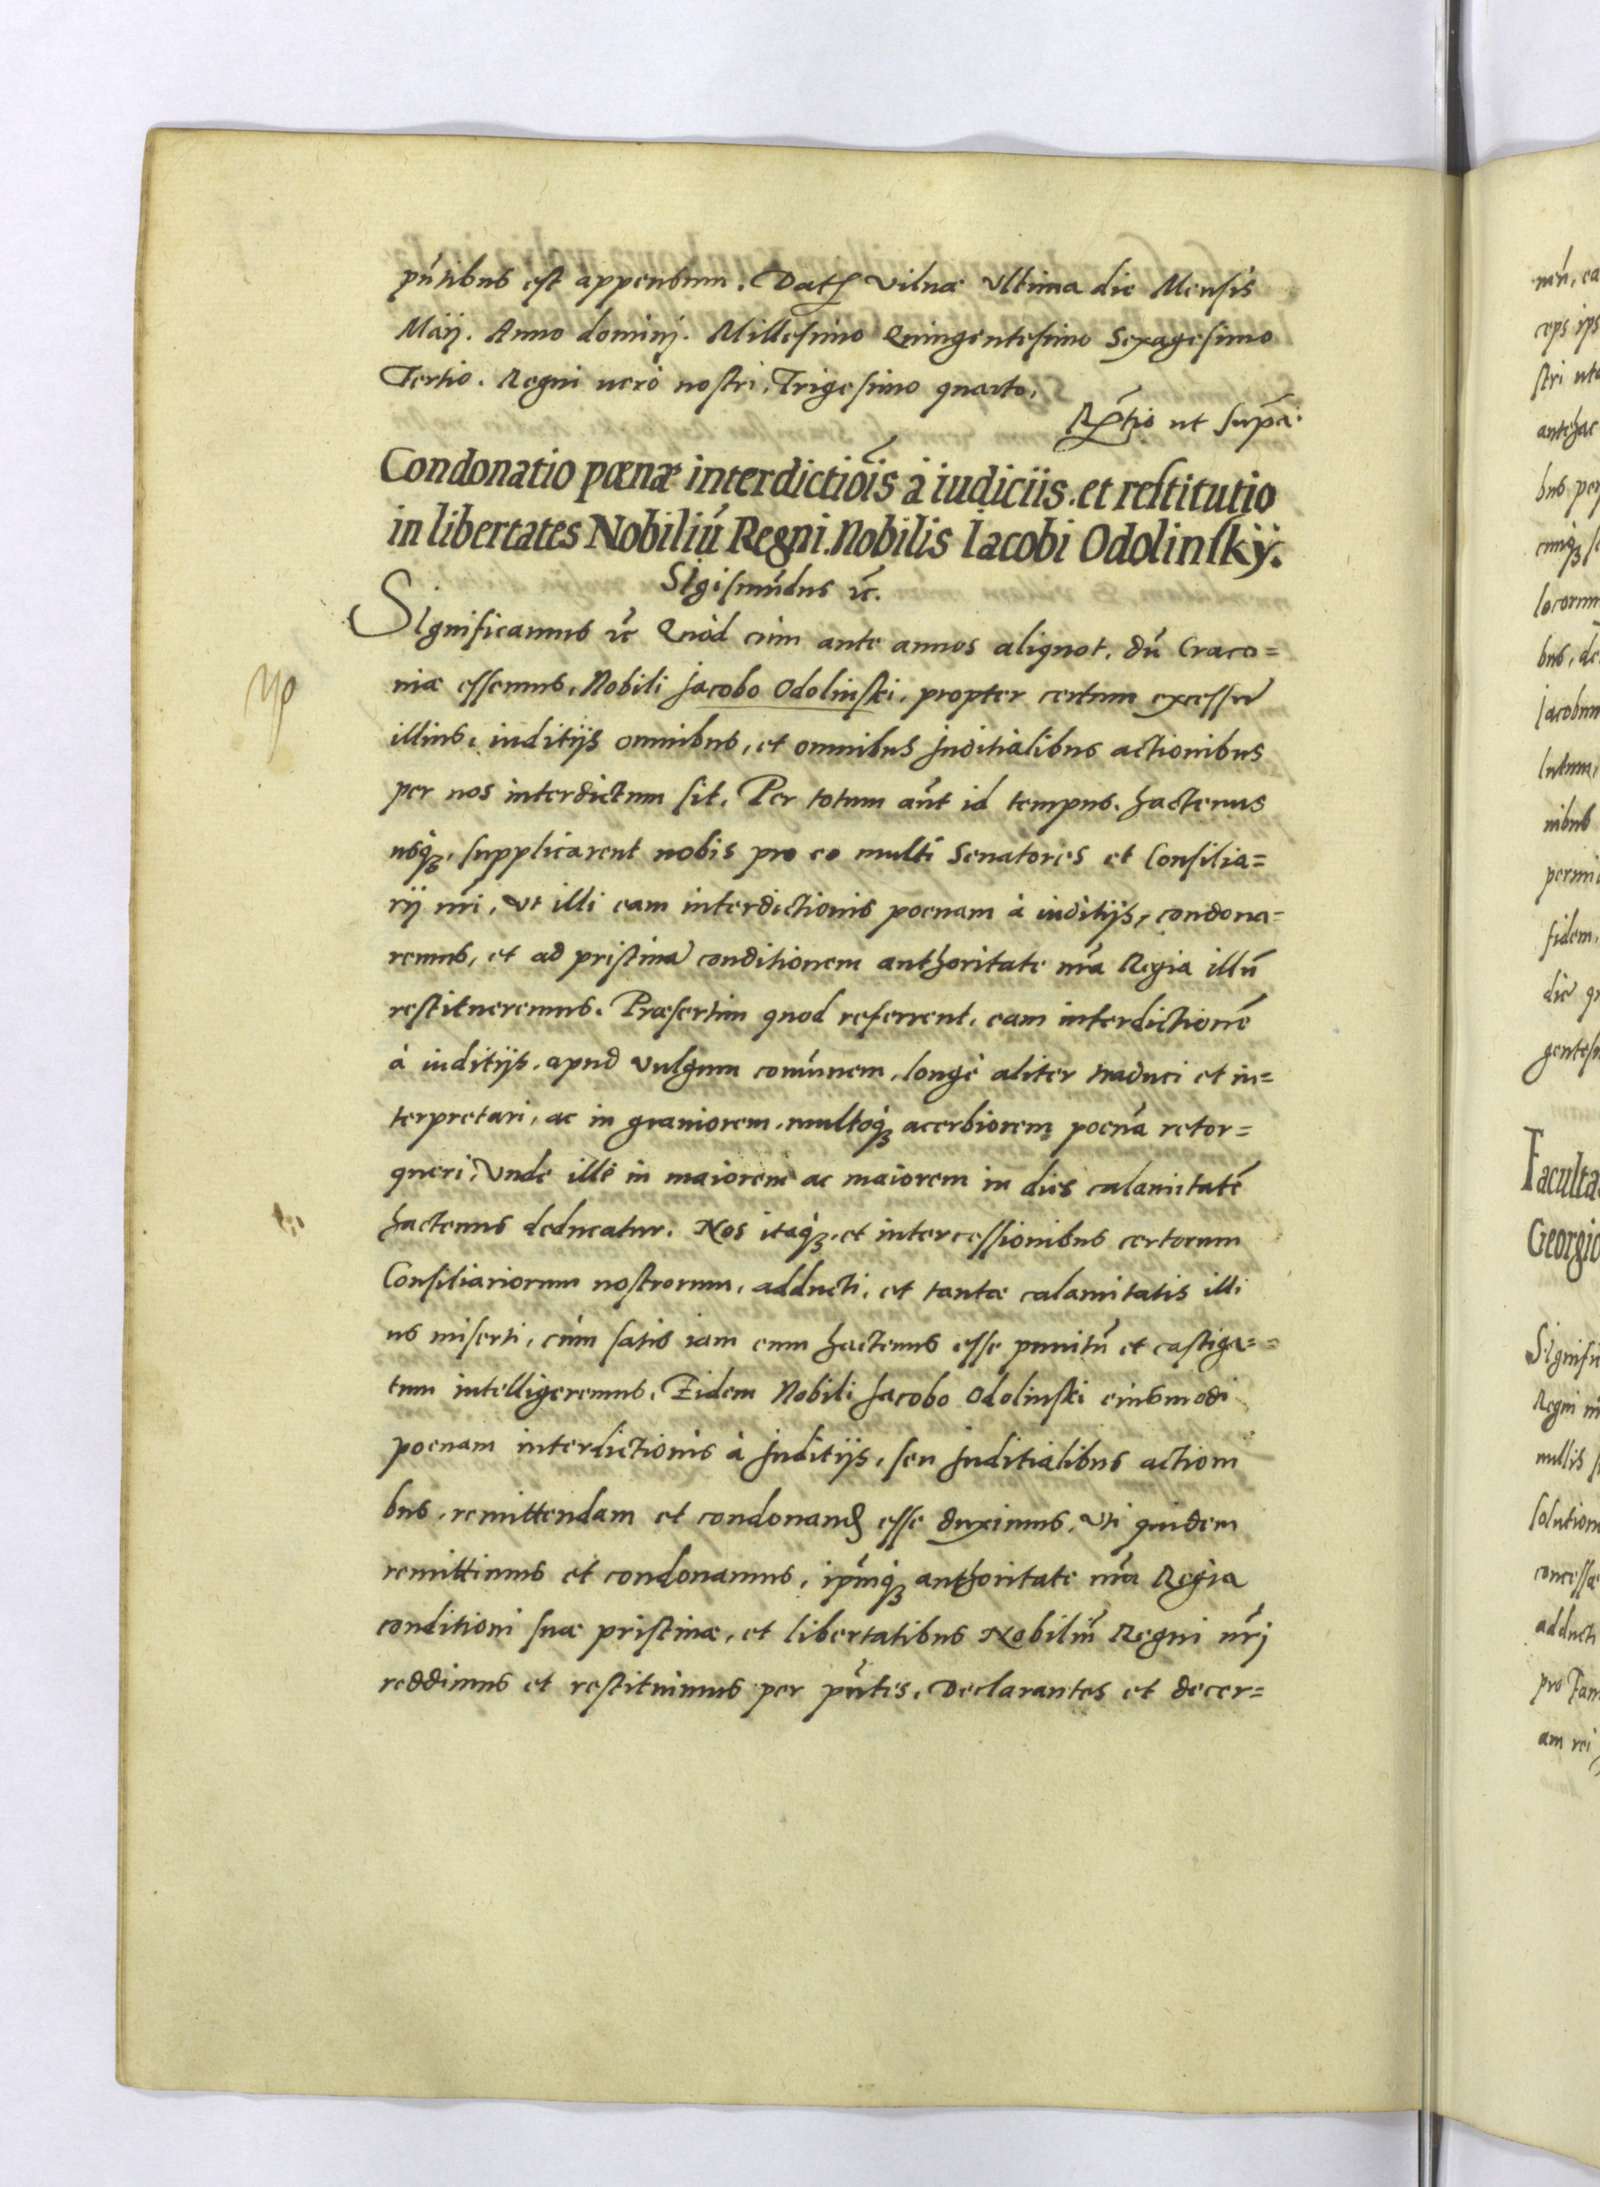 pñtibus est appensum. Dat Vilnæ Ultima die Mensis
Maij. Anno dominj. Millesimo Quingentesimo Sexagesimo
Tertio. Regni uerò nostri, Trigesimo quarto.
Rtio ut supã.
Condonatio pœnæ interdictiõis à iudiciis. et restitutio
in libertates Nobiliũ Regni. Nobilis Iacobi Odolinskÿ.
SIgismũdus ꝛc̃.
SIgnificamus ꝛc̃ Quòd cùm ante annos aliquot. dũ Craco=
uiæ essemus, Nobili Jacobo Odolinski, propter certum excessũ
illius, iuditijs omnibus, et omnibus Juditialibus actionibus
per nos interdictum sit. Per totum aũt id tempus, hactenus
usqꝫ, supplicarent nobis pro eo multi Senatores et Consilia=
rij nri, Vt illi eam interdictionis poenam à iuditijs, condona=
remus, et ad pristinã conditionem authoritate nr̃a Regia illũ
restitueremus. Præsertim quod referrent, eam interdictionẽ
à iuditijs, apud Vulgum com̃unem, longè aliter traduci et in=
terpretari, ac in grauiorem, multoqꝫ acerbiorem poenã retor=
queri, Vnde ille in maiorem ac maiorem in dies calamitatẽ
hactenus deducatur. Nos itaqꝫ, et intercessionibus certorum
Consiliariorum nostrorum, adducti, et tantæ calamitatis illi
us miserti, cùm satis iam eum hactenus esse punitũ et castiga=
tum intelligeremus, Eidem Nobili Jacobo Odolinski eiusmodi
poenam interdictionis à Juditijs, seu Juditialibus actioni
bus, remittendam et condonand esse duximus, Vti quidem
remittimus et condonamus, ip̃umqꝫ authoritate nr̃a Regia
conditioni suæ pristinæ, et libertatibus Nobiliũ Regni nr̃j
reddimus et restituimus per pñtes, Declarantes et decer=
Faculta
Georgio